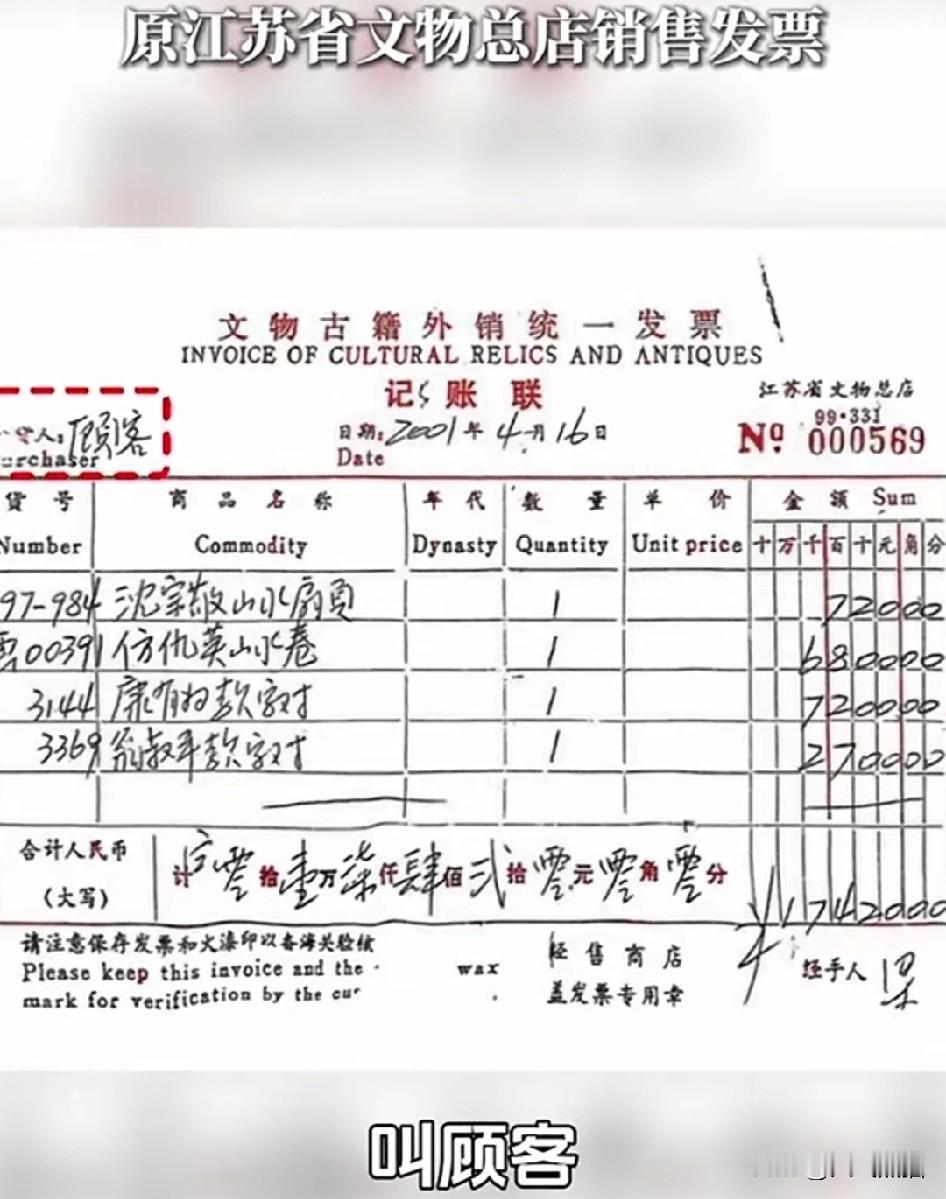 原江苏省文物总店销售发票
文物古籍外销统一发票
INVOICE OF CULTURAL RELICS AND ANTIQUES
记账联
江苏省文物总店
99·331
人:顾客
日期:2001年4月16日
№ 000569
urchaser
Date
货号 商品名称 年代 数量 单价 金额 Sum
Number Commodity Dynasty Quantity Unit price 十万千百十元角分
97-984 沈宗敬山水扇页 1 72000
00391 仿仇英山水卷 1 680000
3144 康有为款字对 1 720000
3369 翁叔平款字对 1 270000
合计人民币
(大写)
计零拾壹万柒仟肆佰贰拾零元零角零分
¥1742000
请注意保存发票和火漆印以备海关验核
Please keep this invoice and the wax
mark for verification by the cu
经售商店
盖发票专用章
经手人 梁
叫顾客